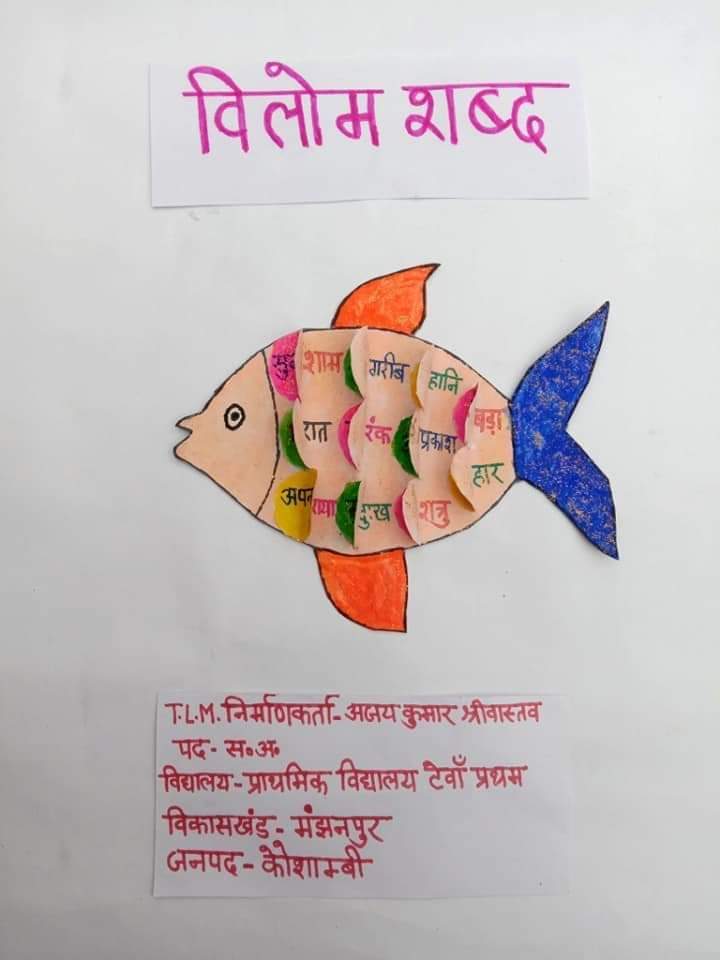 विलोम शब्द
शाम गरीब हानि
रात रंक प्रकाश बड़ा
दुःख शत्रु हार
T.L.M. निर्माणकर्ता- अजय कुमार श्रीवास्तव
पद- स.अ.
विद्यालय- प्राथमिक विद्यालय टेवाँ प्रथम
विकासखंड- मंझनपुर
जनपद- कौशाम्बी